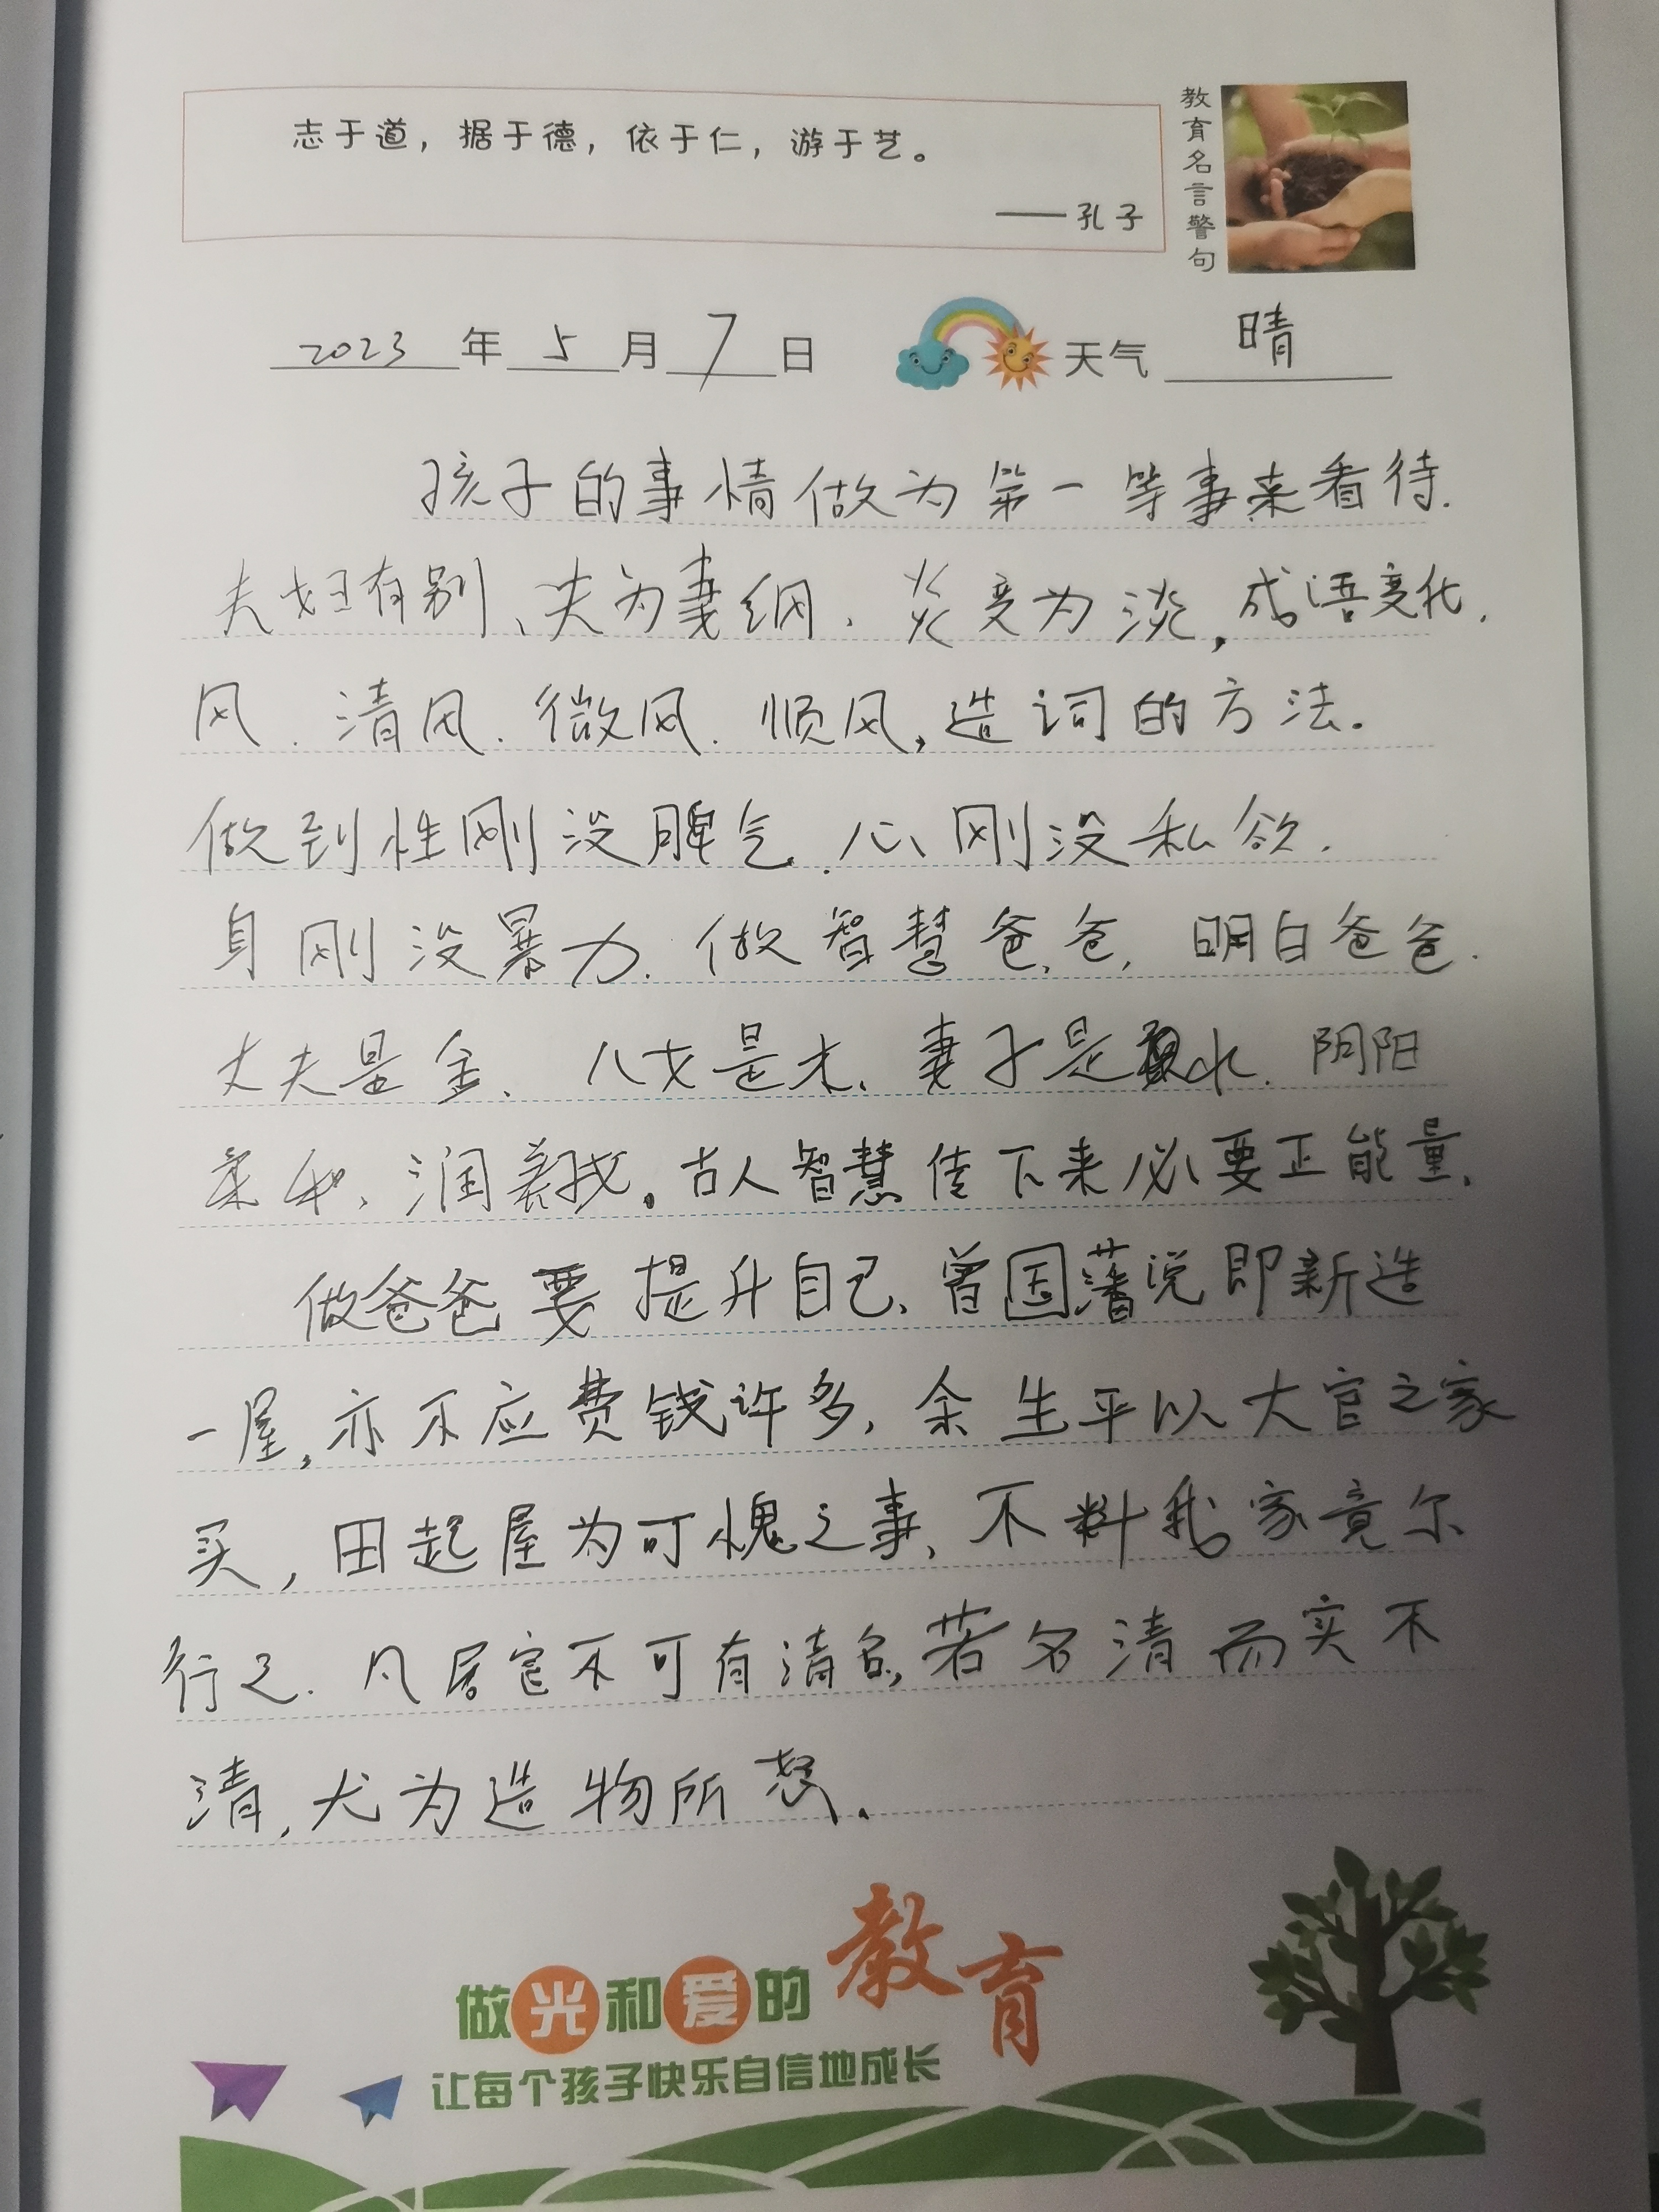 志于道，据于德，依于仁，游于艺。
——孔子
教育名言警句
2023年5月7日 天气 晴
孩子的事情做为第一等事来看待.
夫妇有别、夫为妻纲、炎变为淡，成语变化.
风.清风.微风.顺风，造词的方法.
做到性刚没脾气.心刚没私欲.
身刚没暴力.做智慧爸爸，明白爸爸.
丈夫是金、儿女是木、妻子是水.阴阳
柔和、润养我。古人智慧传下来必要正能量.
做爸爸要提升自己、曾国藩说即新造
一屋，亦不应费钱许多，余生平以大官之家
买，田起屋为可愧之事、不料我家竟尔
行之.凡居官不可有清名，若名清而实不
清，尤为造物所怒.
做光和爱的教育
让每个孩子快乐自信地成长